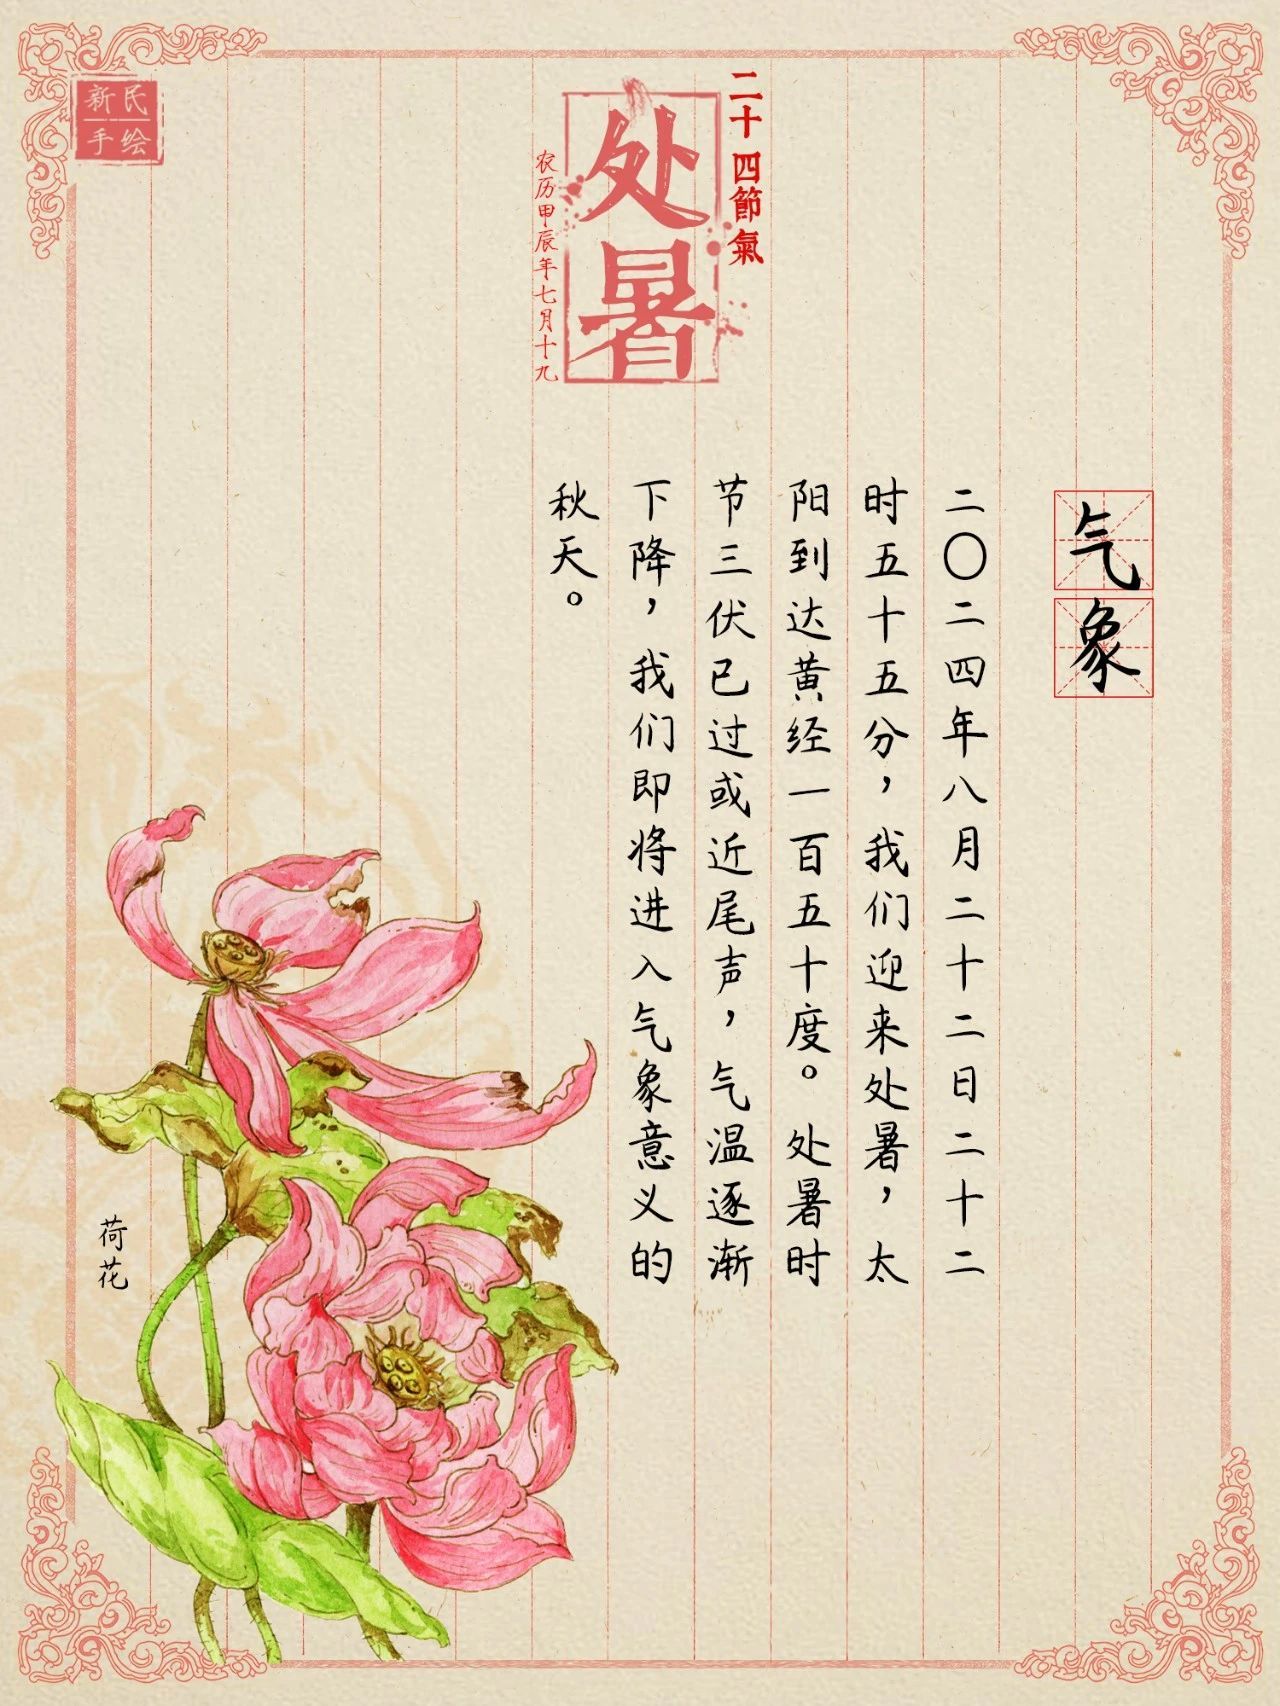 新民
手绘
二十四節氣
处暑
农历甲辰年七月十九
气象
二〇二四年八月二十二日二十二
时五十五分，我们迎来处暑，太
阳到达黄经一百五十度。处暑时
节三伏已过或近尾声，气温逐渐
下降，我们即将进入气象意义的
秋天。
荷花